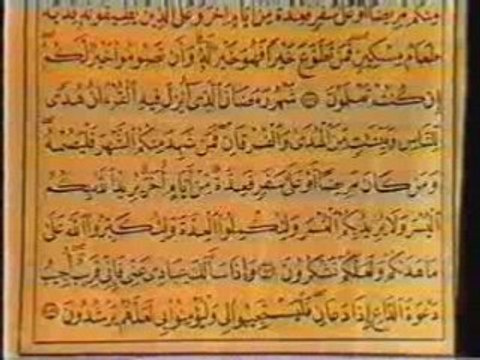 مِنكُم مَّرِيضًا أَوْ عَلَىٰ سَفَرٍ فَعِدَّةٌ مِّنْ أَيَّامٍ أُخَرَ وَعَلَى الَّذِينَ يُطِيقُونَهُ فِدْيَةٌ
طَعَامُ مِسْكِينٍ فَمَن تَطَوَّعَ خَيْرًا فَهُوَ خَيْرٌ لَّهُ وَأَن تَصُومُوا خَيْرٌ لَّكُمْ
إِن كُنتُمْ تَعْلَمُونَ ۝ شَهْرُ رَمَضَانَ الَّذِي أُنزِلَ فِيهِ الْقُرْءَانُ هُدًى
لِّلنَّاسِ وَبَيِّنَاتٍ مِّنَ الْهُدَىٰ وَالْفُرْقَانِ فَمَن شَهِدَ مِنكُمُ الشَّهْرَ فَلْيَصُمْهُ
وَمَن كَانَ مَرِيضًا أَوْ عَلَىٰ سَفَرٍ فَعِدَّةٌ مِّنْ أَيَّامٍ أُخَرَ يُرِيدُ اللَّهُ بِكُمُ
الْيُسْرَ وَلَا يُرِيدُ بِكُمُ الْعُسْرَ وَلِتُكْمِلُوا الْعِدَّةَ وَلِتُكَبِّرُوا اللَّهَ عَلَىٰ
مَا هَدَىٰكُمْ وَلَعَلَّكُمْ تَشْكُرُونَ ۝ وَإِذَا سَأَلَكَ عِبَادِي عَنِّي فَإِنِّي قَرِيبٌ أُجِيبُ
دَعْوَةَ الدَّاعِ إِذَا دَعَانِ فَلْيَسْتَجِيبُوا لِي وَلْيُؤْمِنُوا بِي لَعَلَّهُمْ يَرْشُدُونَ ۝